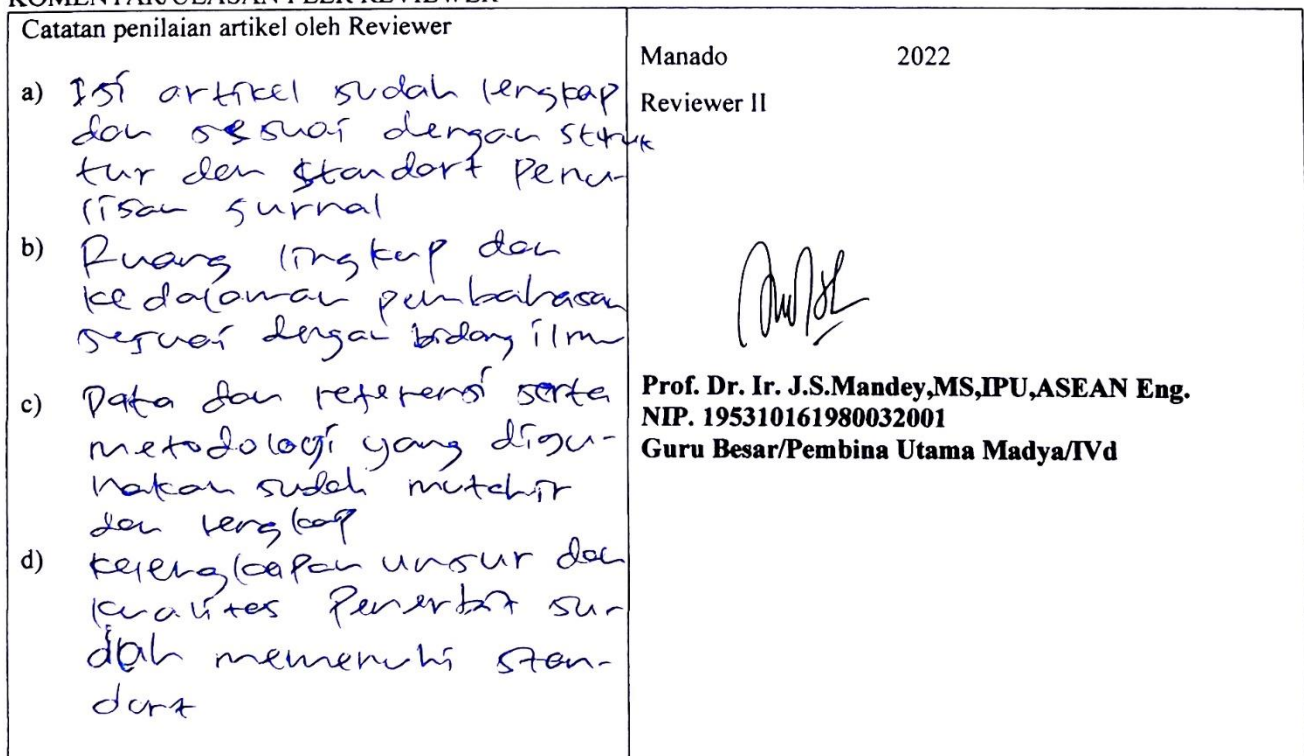 KOMENTAR/ULASAN PEER REVIEWER
Catatan penilaian artikel oleh Reviewer
a) Isi artikel sudah lengkap
dan sesuai dengan struk
tur dan standart Penu-
lisan Jurnal
b) Ruang lingkup dan
kedalaman pembahasan
sesuai dengan bidang ilmu
c) Data dan referensi serta
metodologi yang digu-
nakan sudah mutahir
dan lengkap
d) kelengkapan unsur dan
kualitas Penerbit su-
dah memenuhi stan-
dart
Manado 2022
Reviewer II
Prof. Dr. Ir. J.S.Mandey,MS,IPU,ASEAN Eng.
NIP. 195310161980032001
Guru Besar/Pembina Utama Madya/IVd